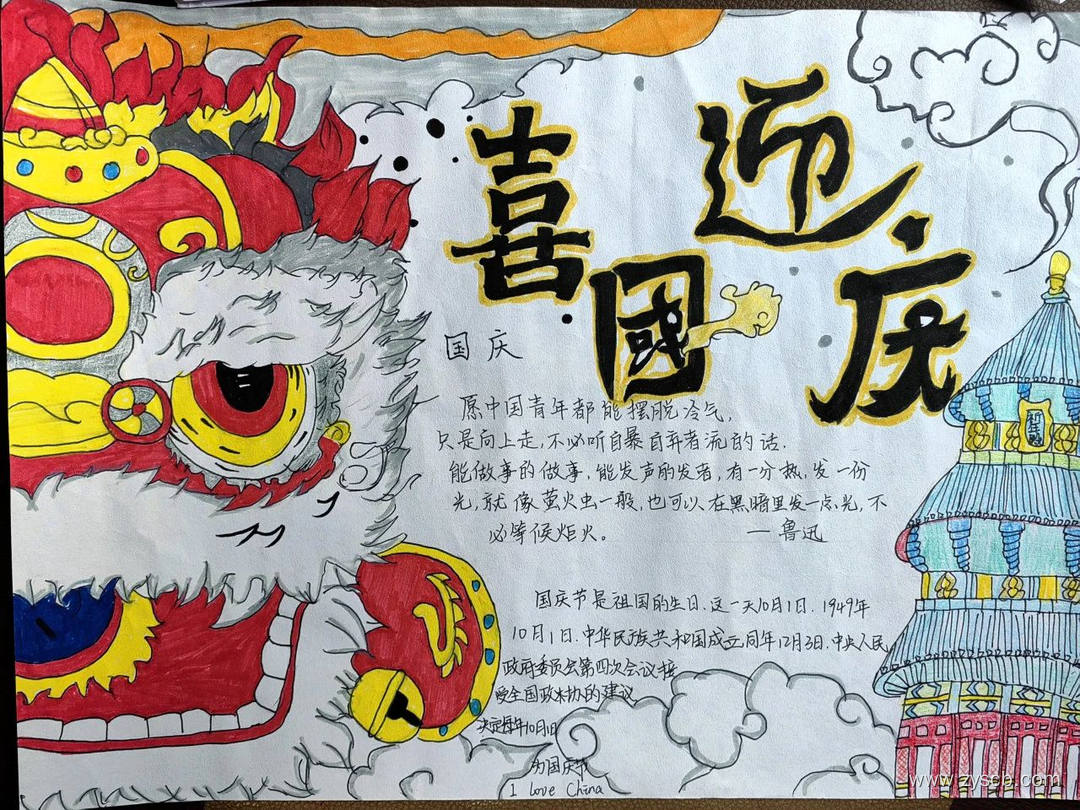 喜迎
國庆
国庆
愿中国青年都能摆脱冷气,
只是向上走,不必听自暴自弃者流的话.
能做事的做事,能发声的发者,有一分热,发一份
光,就像萤火虫一般,也可以在黑暗里发一点光,不
必等候炬火。
—鲁迅
国庆节是祖国的生日、这一天10月1日.1949年
10月1日.中华民族共和国成立同年12月3日、中央人民
政府委员会第四次会议接
受全国政木协的建议
决定每年10月1日
为国庆节
I Love China
祈年殿
www.zyscb.com